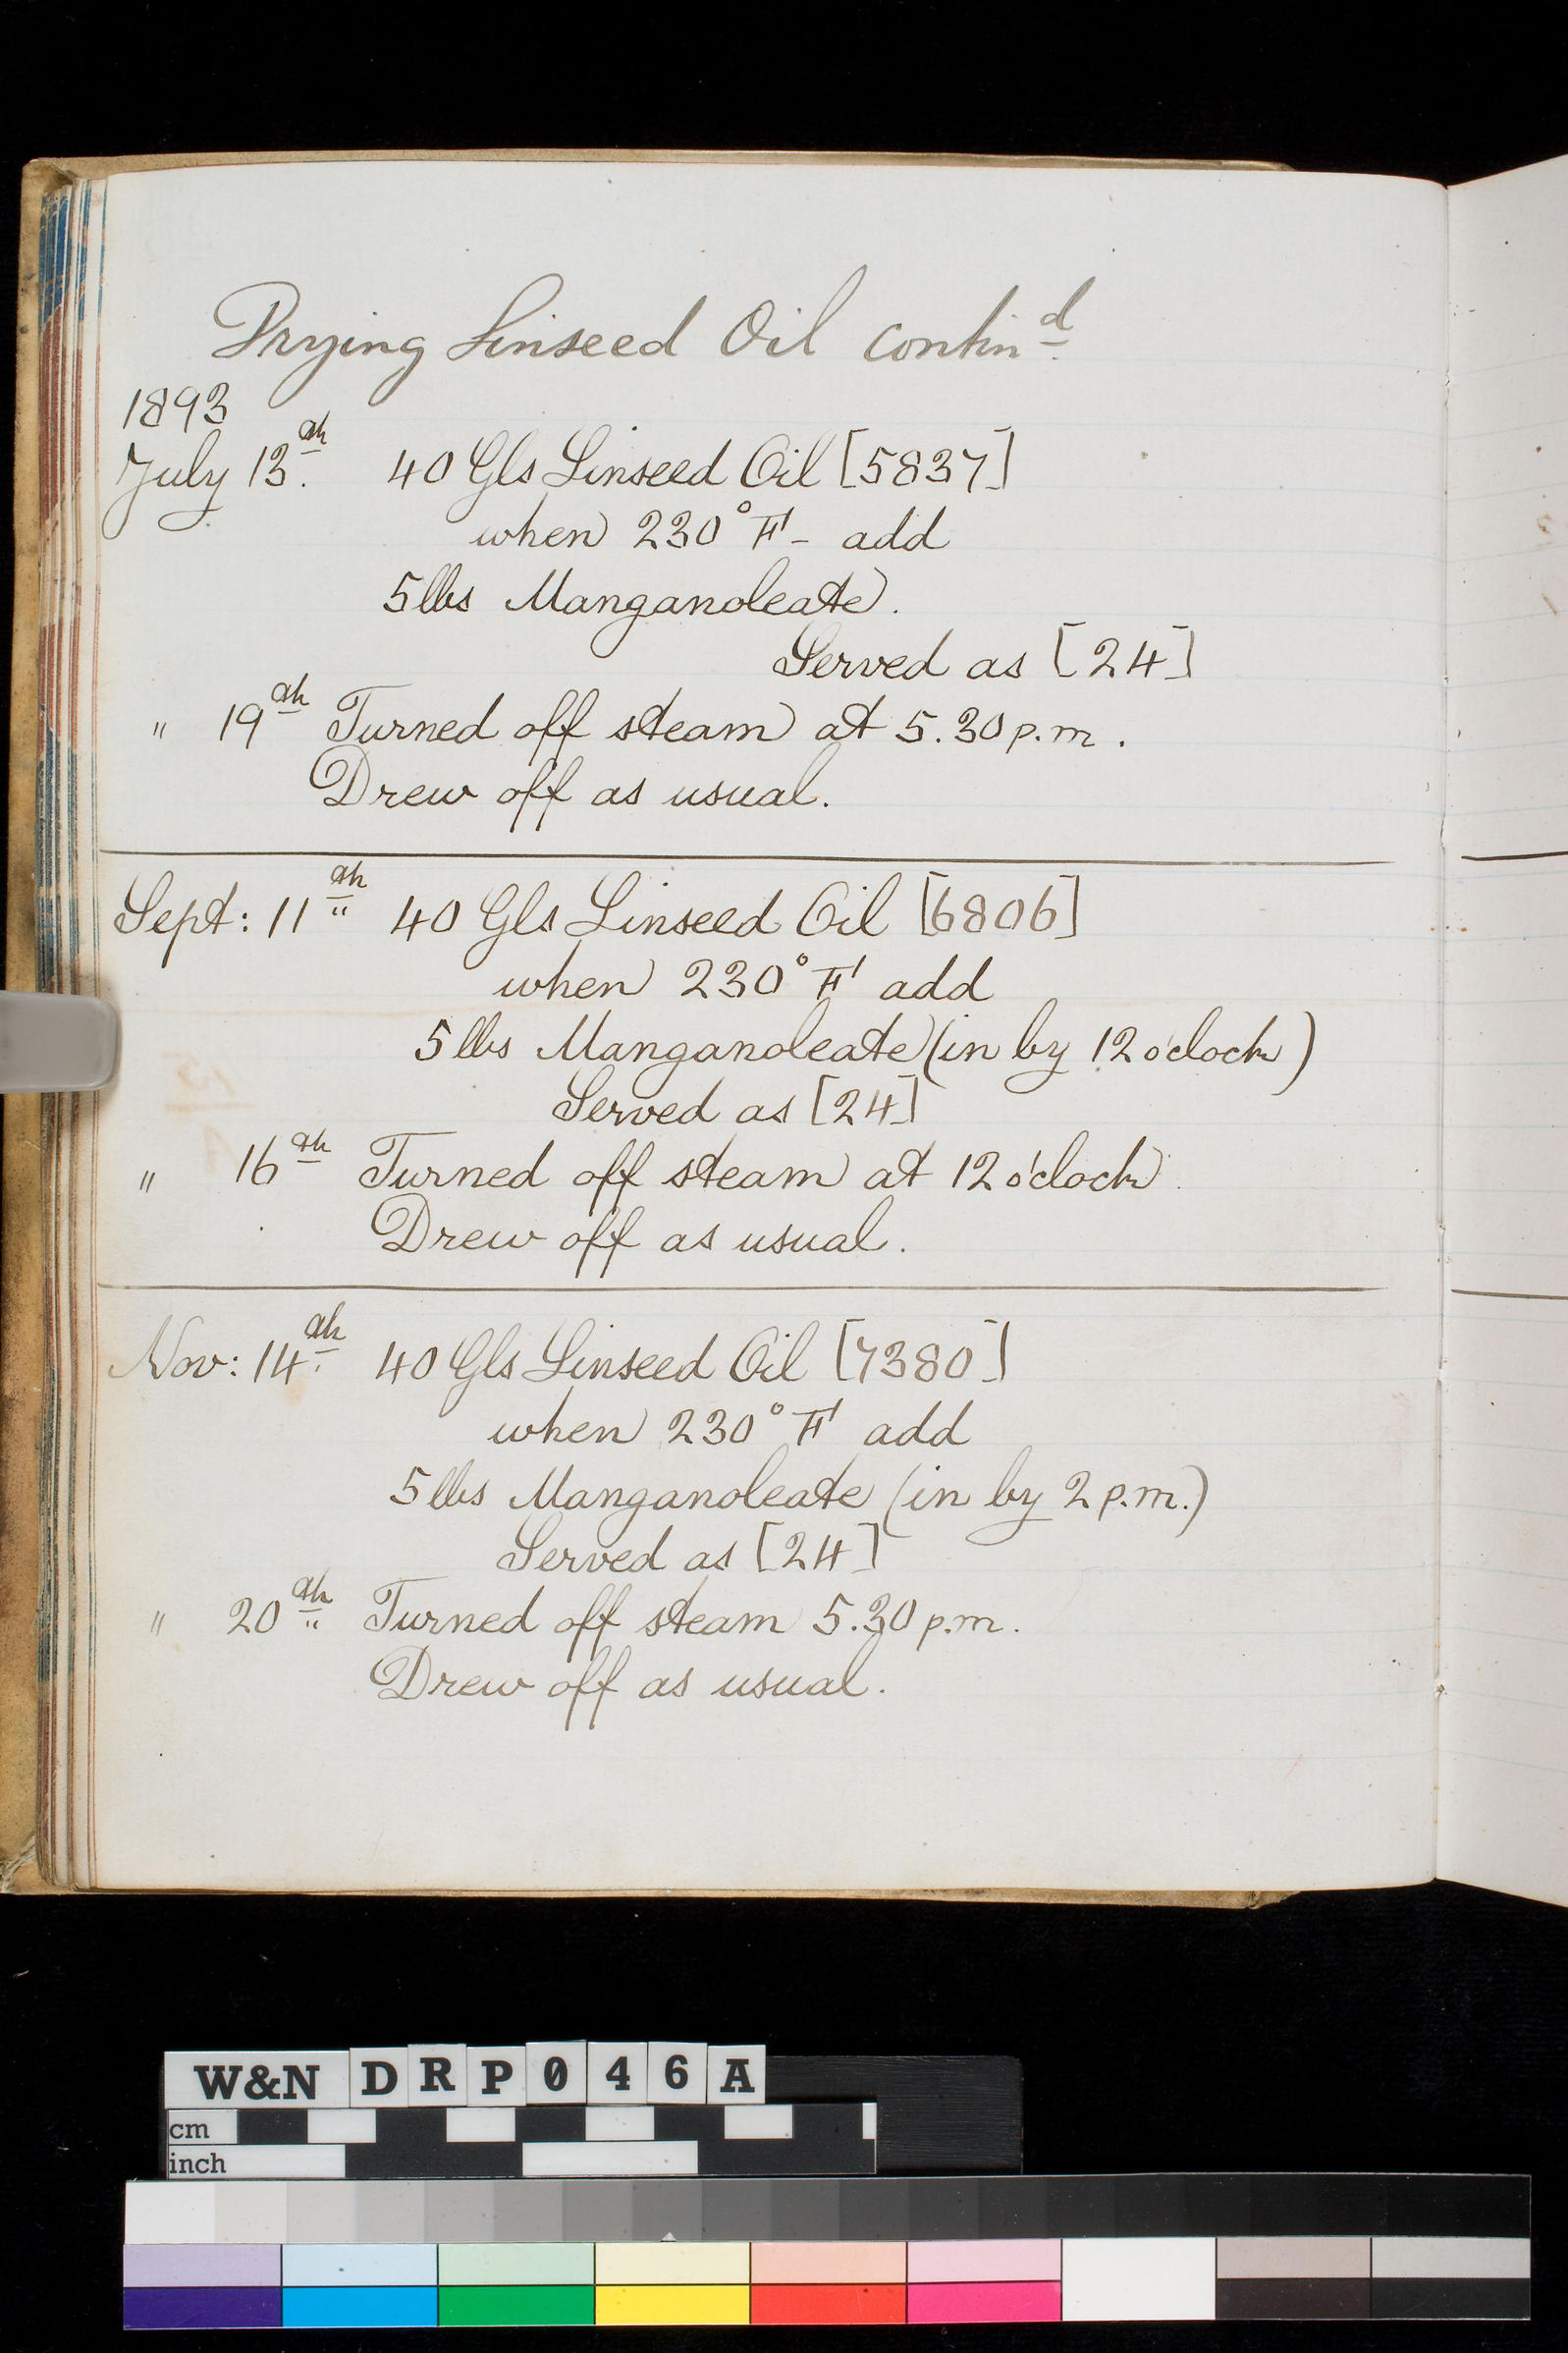 Drying Linseed Oil contin^d.
1893
July 13^th. 40 Gls Linseed Oil [5837]
when 230° F - add
5 lbs Manganoleate.
Served as [24]
" 19^th Turned off steam at 5.30 p.m.
Drew off as usual.
Sept: 11^th 40 Gls Linseed Oil [6806]
when 230° F add
5 lbs Manganoleate (in by 12 o'clock)
Served as [24]
" 16^th Turned off steam at 12 o'clock
Drew off as usual.
Nov: 14^th 40 Gls Linseed Oil [7380]
when 230° F add
5 lbs Manganoleate (in by 2 p.m.)
Served as [24]
" 20^th Turned off steam 5.30 p.m.
Drew off as usual.
W&N DRP046A
cm
inch